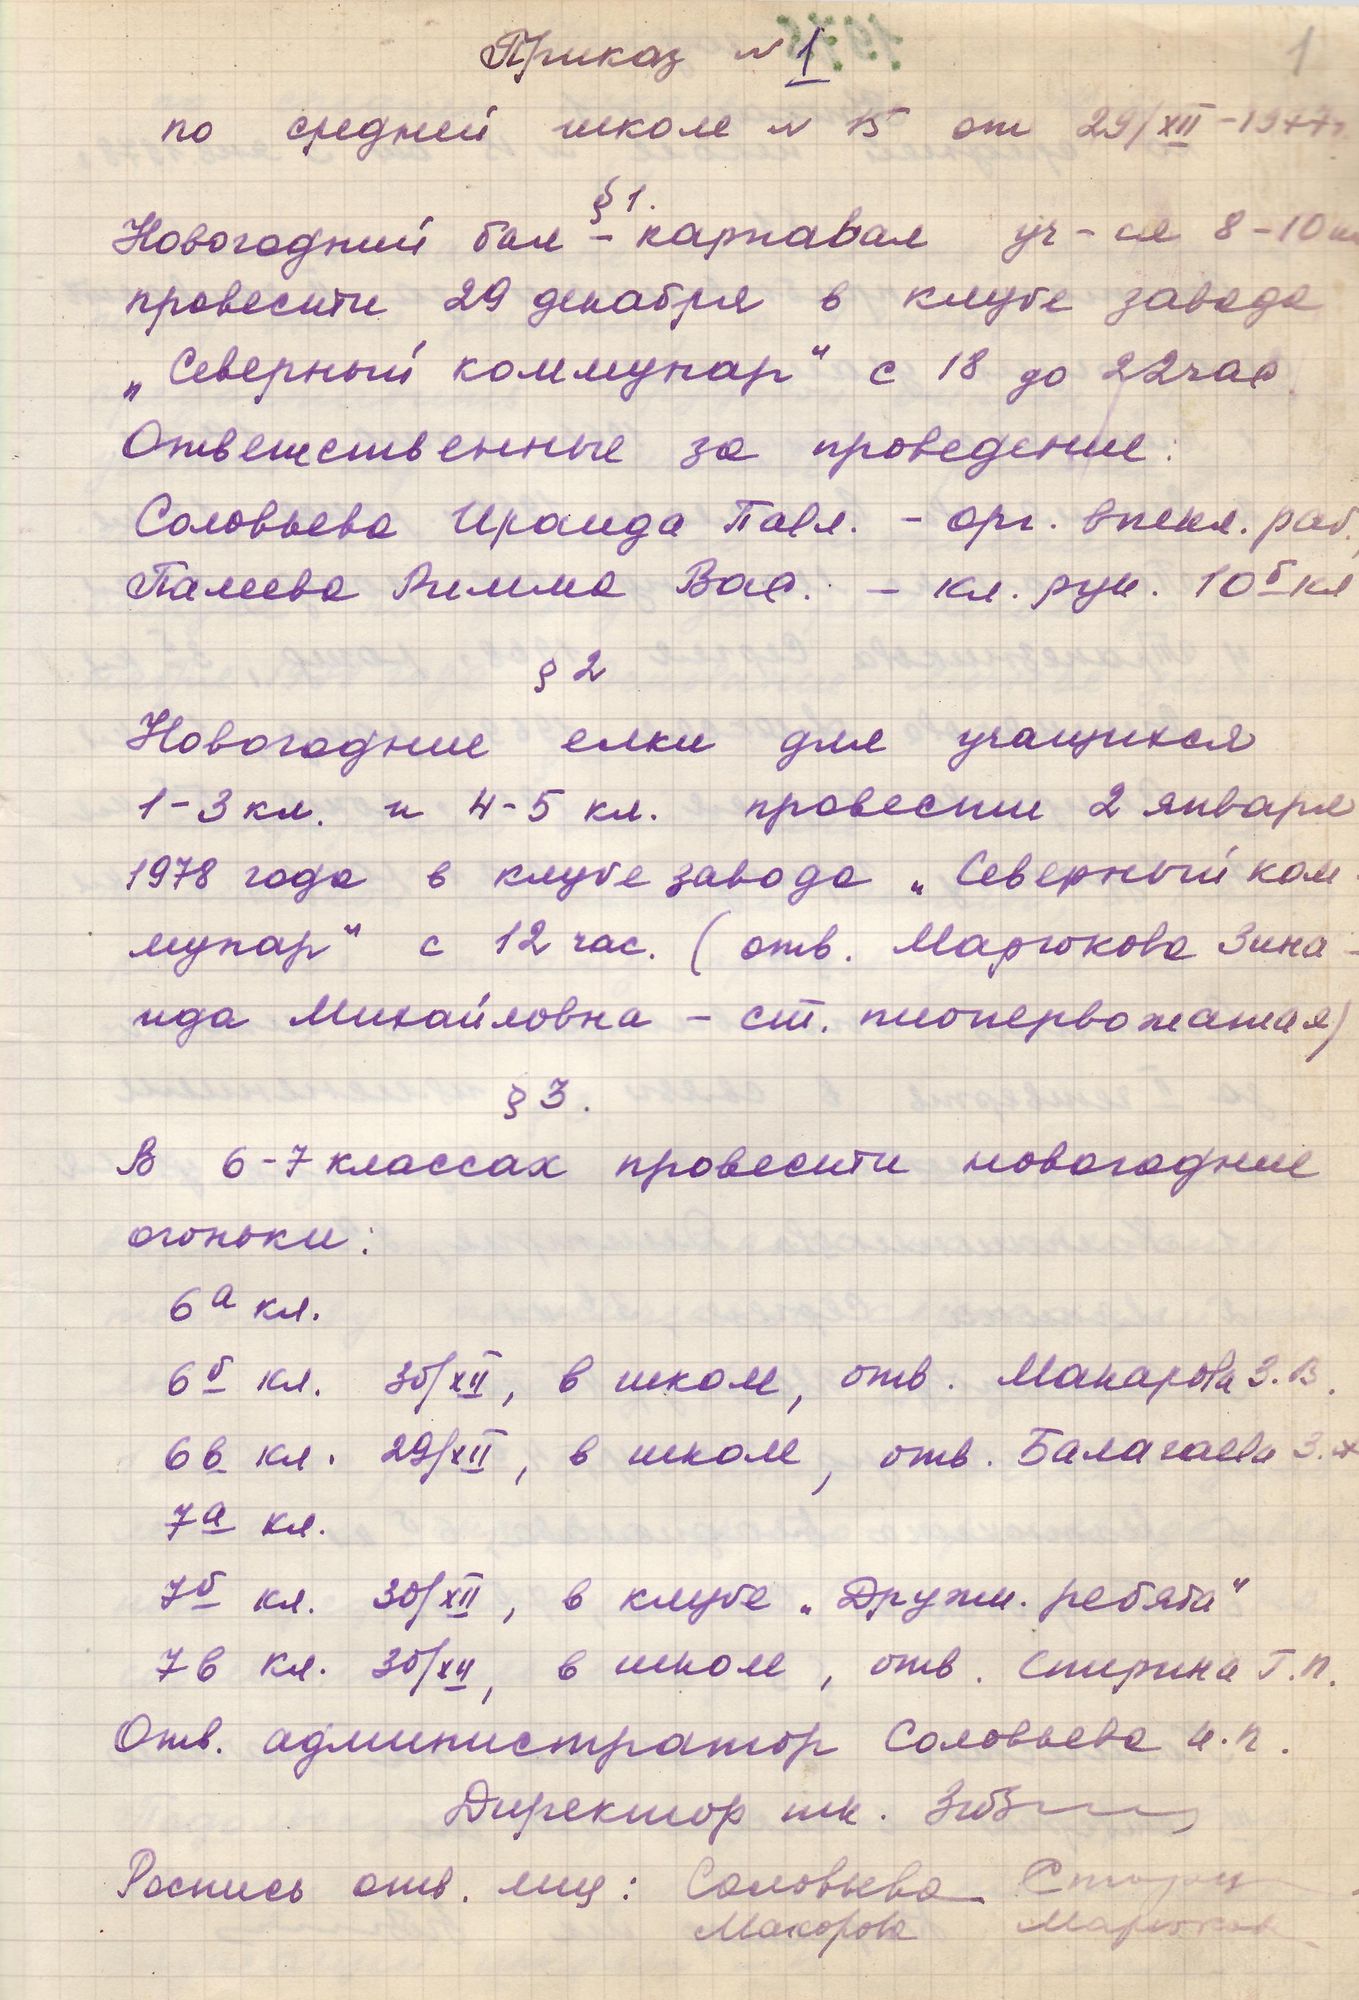 1
Приказ № 1
по средней школе № 15 от 29/XII-1977г.
§ 1.
Новогодний бал - карнавал уч-ся 8-10 кл
провести 29 декабря в клубе завода
„Северный коммунар" с 18 до 22 час.
Ответственные за проведение:
Соловьева Ираида Павл. - орг. внекл. раб.,
Палеева Римма Вас. - кл. рук. 10б кл
§ 2
Новогодние елки для учащихся
1-3 кл. и 4-5 кл. провести 2 января
1978 года в клубе завода „Северный ком-
мунар" с 12 час. (отв. Марюкова Зина-
ида Михайловна - ст. пионервожатая)
§ 3.
В 6-7 классах провести новогодние
огоньки:
6а кл.
6б кл. 30/XII, в школе, отв. Макарова З.В.
6в кл. 29/XII, в школе, отв. Балагаева З.
7а кл.
7б кл. 30/XII, в клубе „Дружн. ребята"
7в кл. 30/XII, в школе, отв. Стирина Г.П.
Отв. администратор Соловьева И.П.
Директор шк.
Роспись отв. лиц: Соловьева
Макарова Марюкова